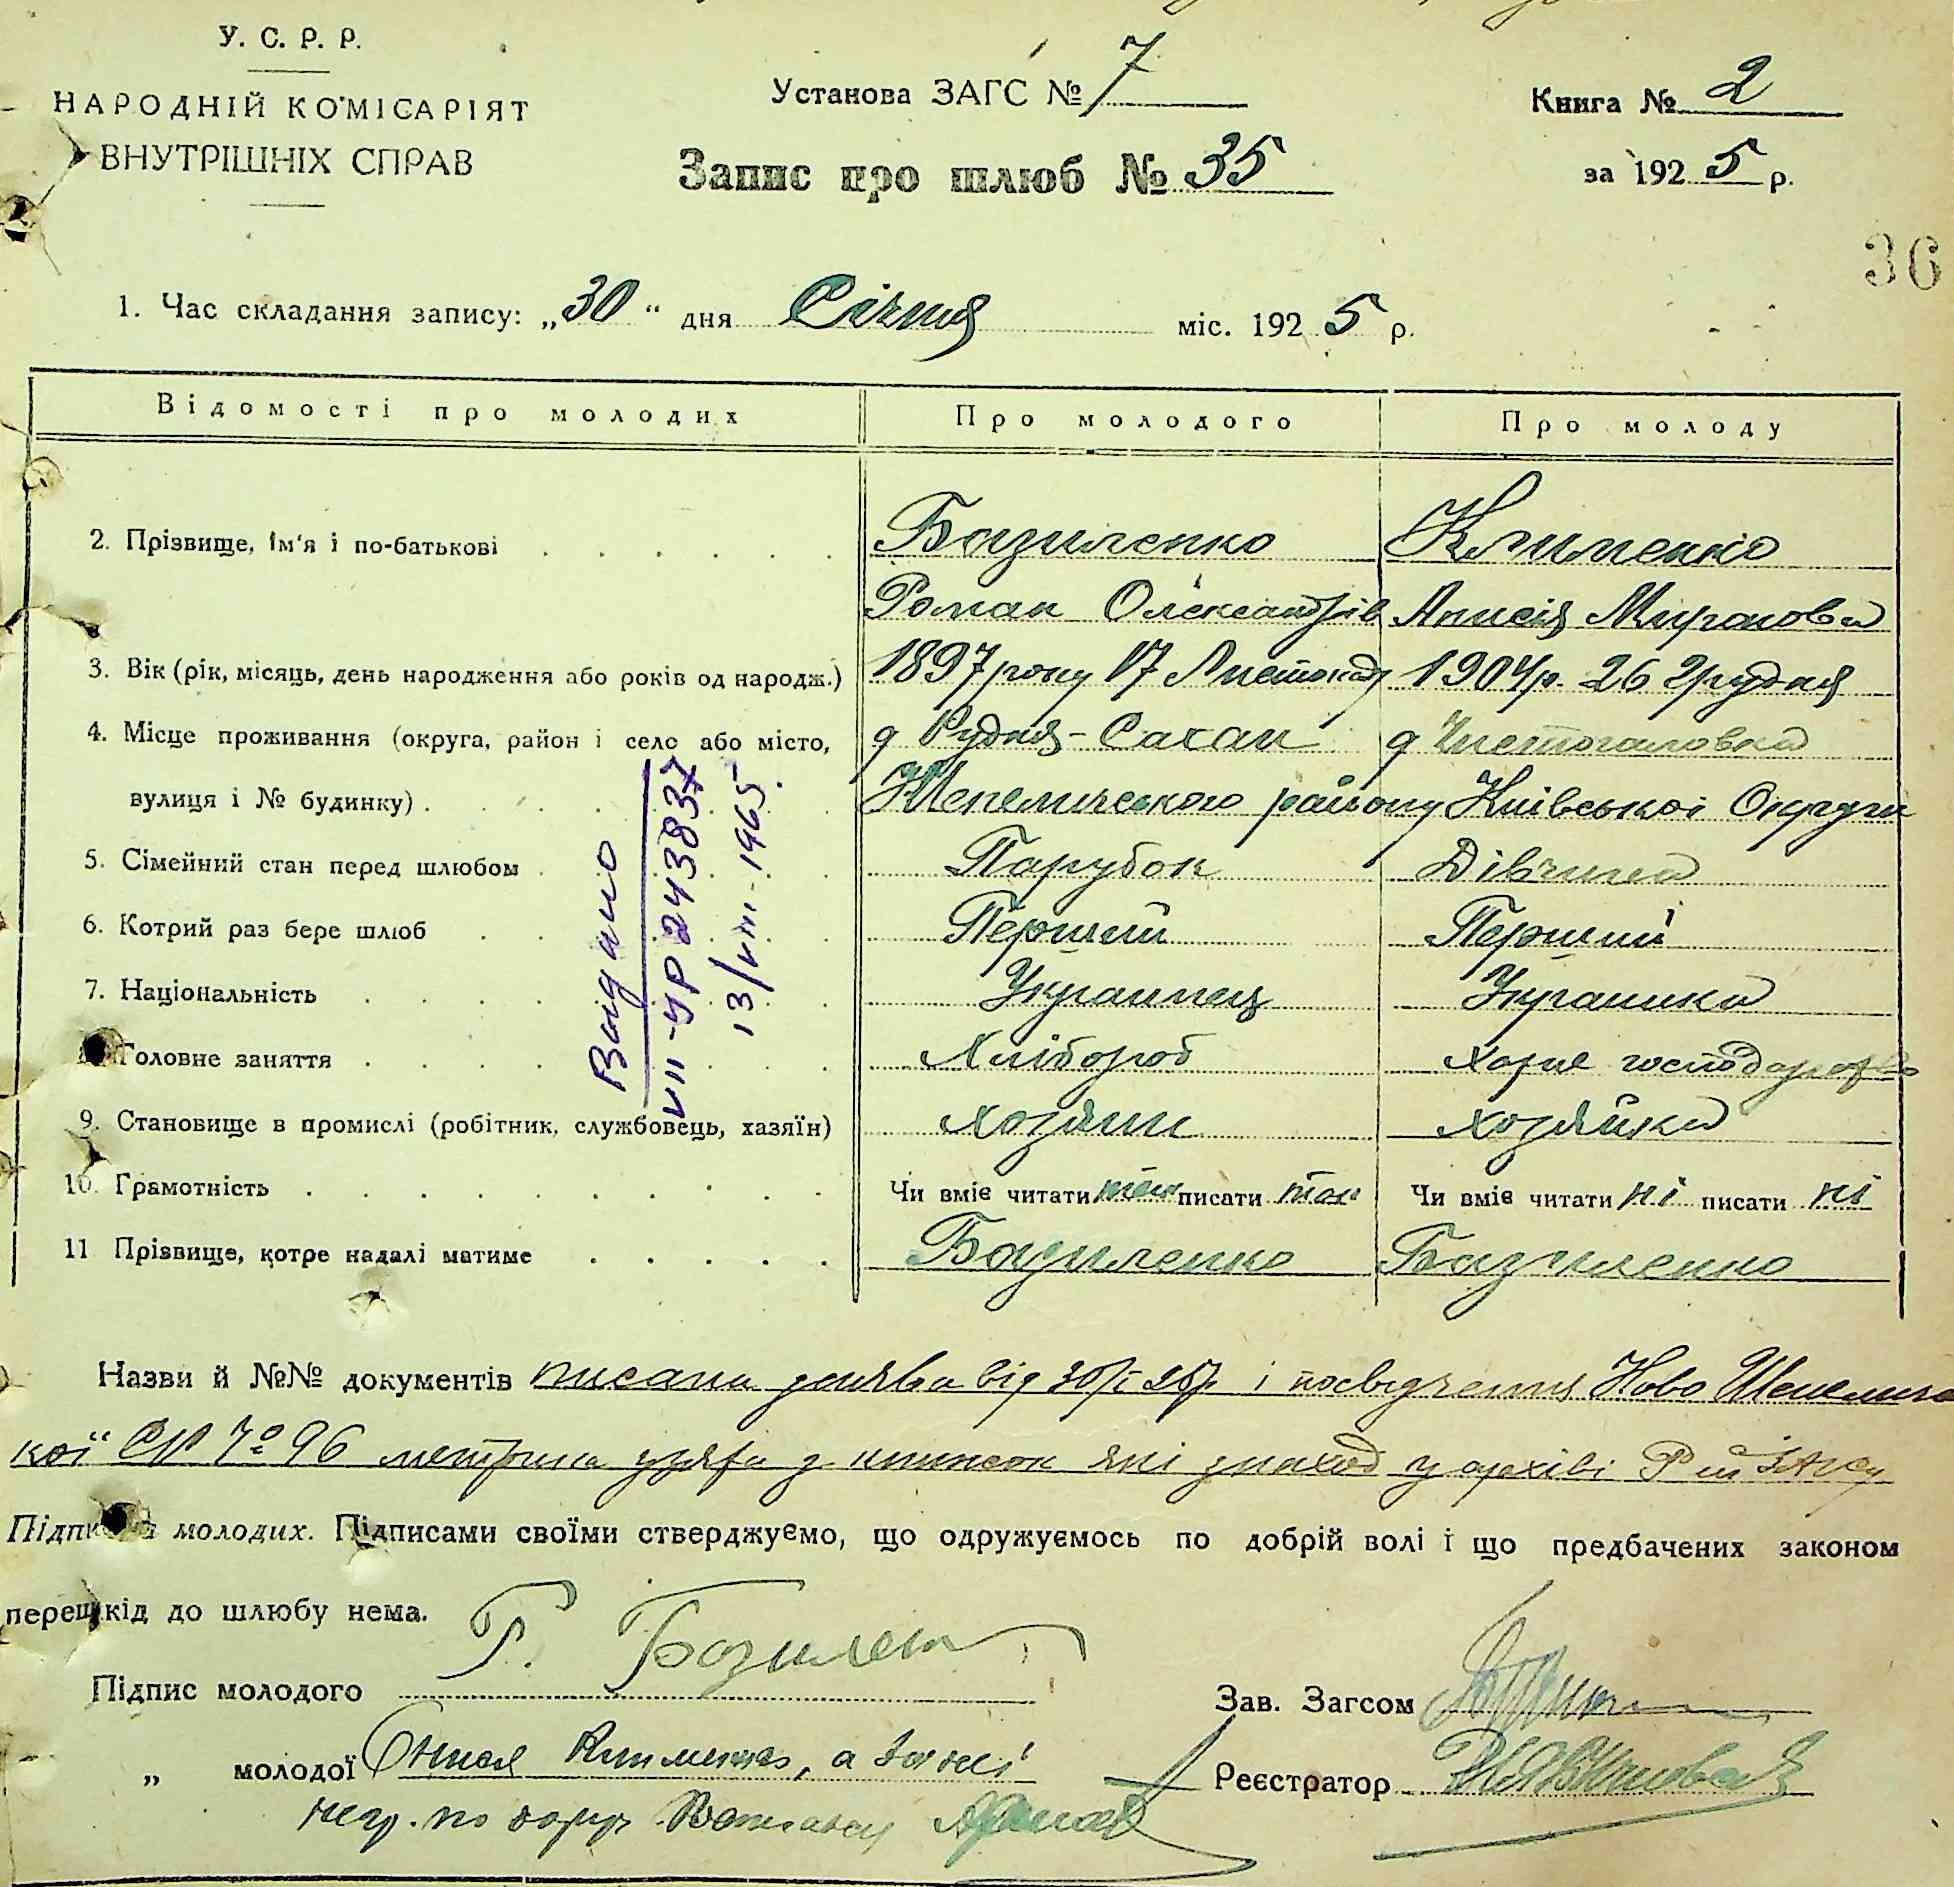 У. С. Р. Р.
НАРОДНІЙ КОМІСАРІЯТ
ВНУТРІШНІХ СПРАВ
Установа ЗАГС № 7
Книга № 2
Запис про шлюб № 35
за 1925 р.
36
1. Час складання запису: „30“ дня Січня міс. 1925 р.
Відомості про молодих Про молодого Про молоду
2. Прізвище, ім'я і по-батькові Базиленко Клименко
Роман Олександрів Анисія Миронова
3. Вік (рік, місяць, день народження або років од народж.) 1897 року 17 Листопаду 1904 р. 26 Грудня
4. Місце проживання (округа, район і село або місто, д Рудня-Сахан д Чистогаловка
вулиця і № будинку) Шепелицького району Київської Округи
5. Сімейний стан перед шлюбом Парубок Дівчина
6. Котрий раз бере шлюб Перший Перший
7. Національність Украинец Украинка
Головне заняття Хлібороб хатне господарство
9. Становище в промислі (робітник, службовець, хазяїн) хозяин хозяйка
10. Грамотність Чи вміє читати так писати так Чи вміє читати ні писати ні
11 Прізвище, котре надалі матиме Базиленко Базиленко
Видано
VII-УР 243837
13/VIII-1965.
Назви й №№ документів писана заява від 30/I 25 р і посвідчення Ново Шепелиць
кої СР № 96 метрична з книжок які у архіві
Підписи молодих. Підписами своїми стверджуємо, що одружуємось по добрій волі і що предбачених законом
перешкід до шлюбу нема.
Підпис молодого Р. Базилен
Зав. Загсом
„ молодої Онися Клименко, а за неї
Реєстратор
негр. по